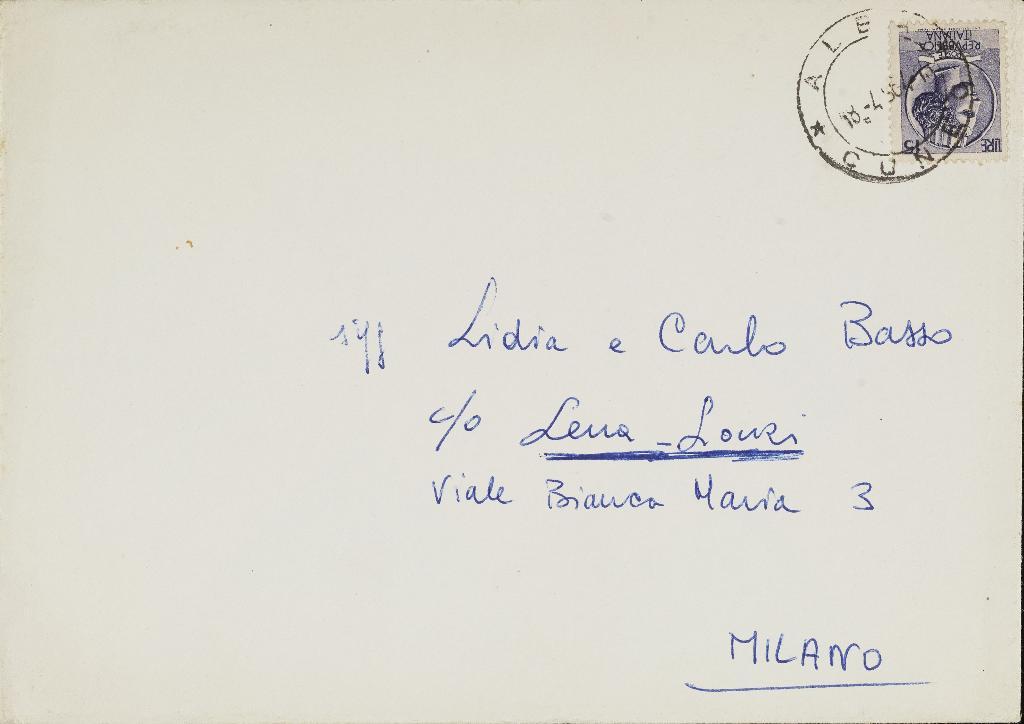 ALE
CUNEO
REPVBBLICA
ITALIANA
LIRE 15
sigg Lidia e Carlo Basso
c/o Lena-Lonzi
Viale Bianca Maria 3
MILANO